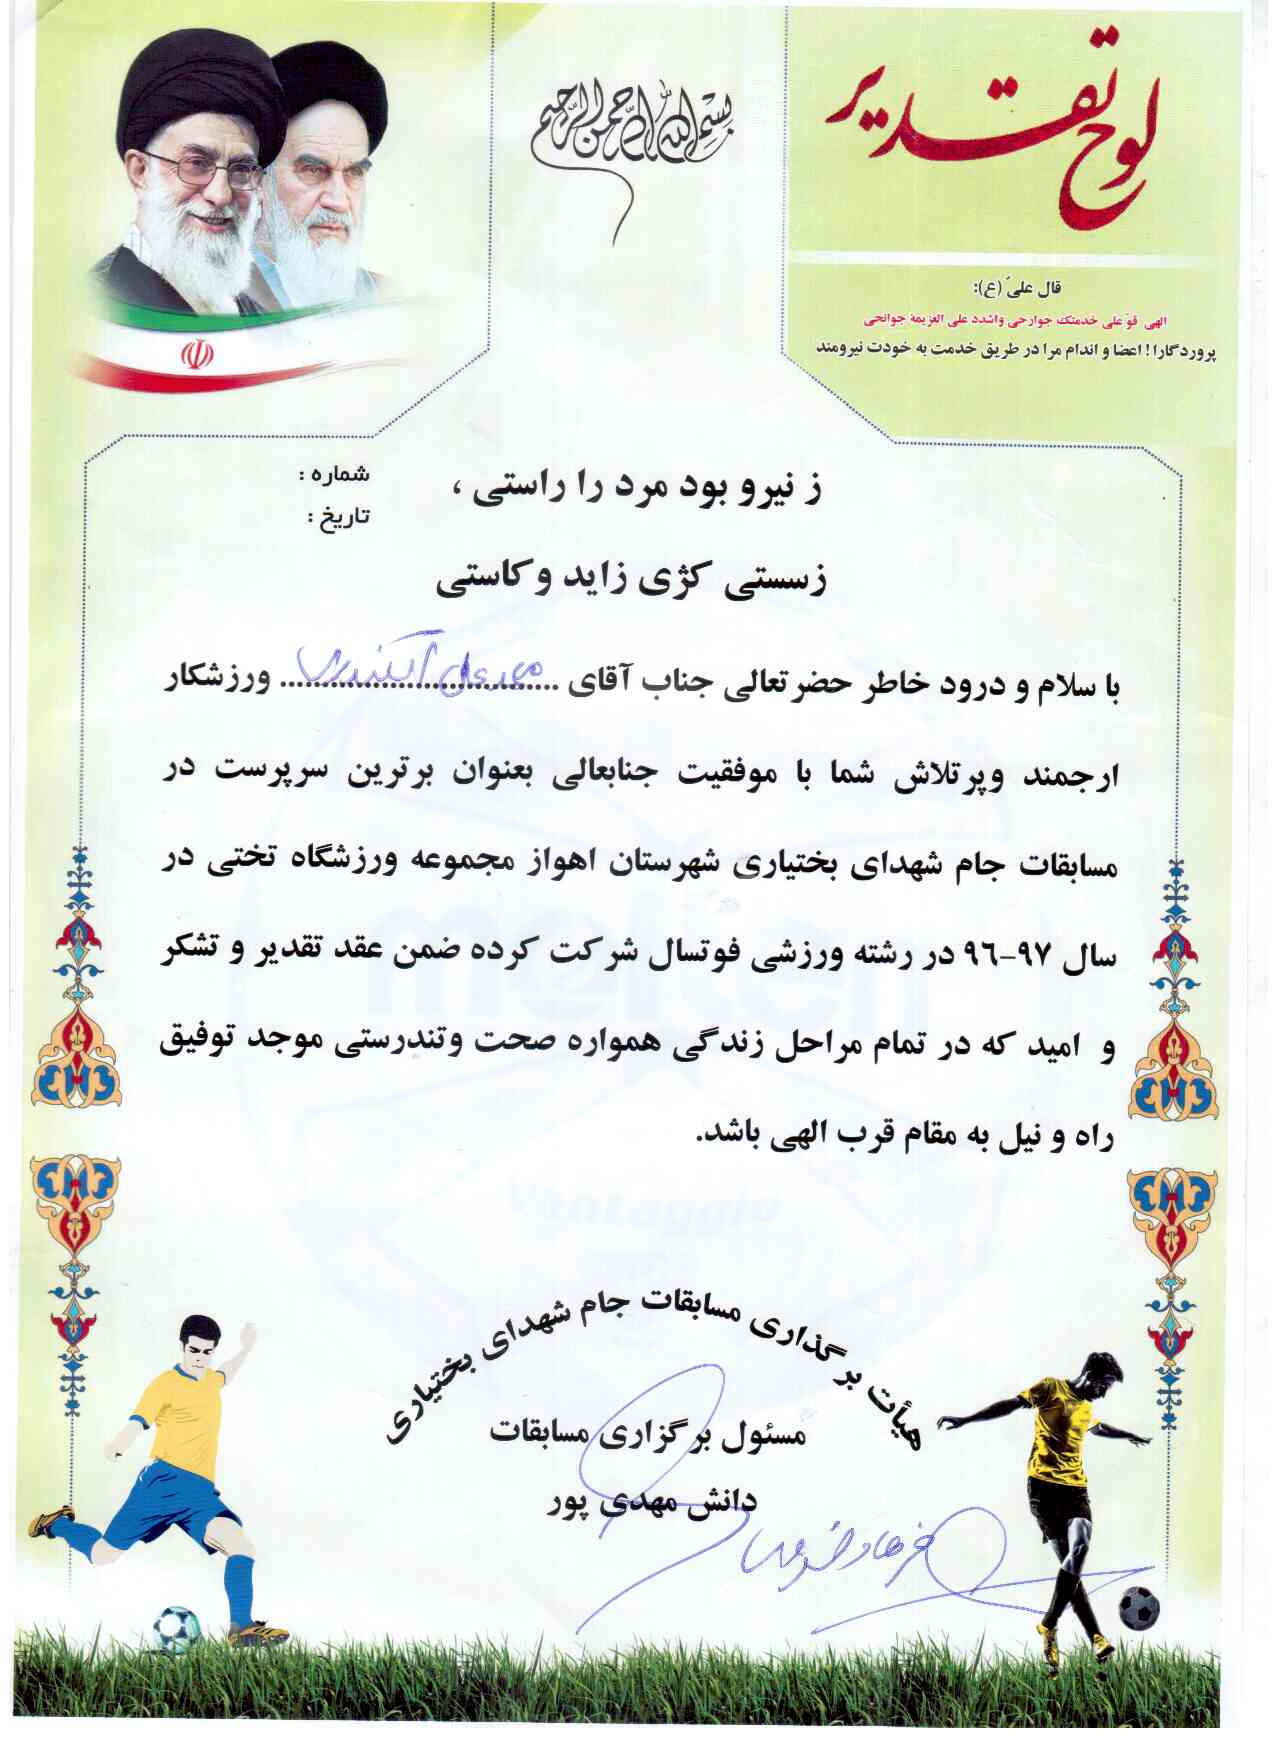 لوح تقدیر
بسم الله الرحمن الرحیم
قال علی (ع):
الهی قوّ علی خدمتک جوارحی واشدد علی العزیمة جوانحی
پروردگارا! اعضا و اندام مرا در طریق خدمت به خودت نیرومند
شماره :
تاریخ :
ز نیرو بود مرد را راستی ،
زسستی کژی زاید وکاستی
با سلام و درود خاطر حضرتعالی جناب آقای مهدی اسکندری ورزشکار
ارجمند وپرتلاش شما با موفقیت جنابعالی بعنوان برترین سرپرست در
مسابقات جام شهدای بختیاری شهرستان اهواز مجموعه ورزشگاه تختی در
سال ۹۷-۹۶ در رشته ورزشی فوتسال شرکت کرده ضمن عقد تقدیر و تشکر
و امید که در تمام مراحل زندگی همواره صحت وتندرستی موجد توفیق
راه و نیل به مقام قرب الهی باشد.
هیأت برگذاری مسابقات جام شهدای بختیاری
مسئول برگزاری مسابقات
دانش مهدی پور